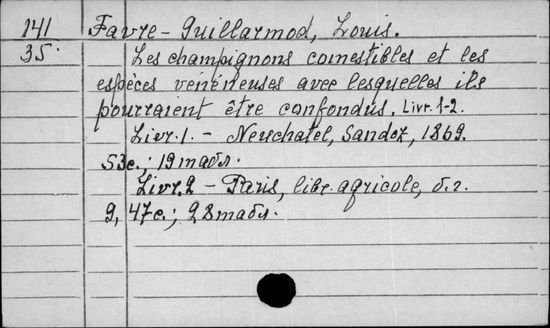 141 Favre-Guillarmod, Louis.
35. Les champignons comestibles et les
espèces vénéneuses avec lesquelles ils
pourraient être confondus. Livr. 1-2.
Livr. 1. - Neuchatel, Sandoz, 1869.
53 c.; 19 табл.
Livr. 2 - Paris, libr. agricole, б.г.
9, 47 c.; 28 табл.